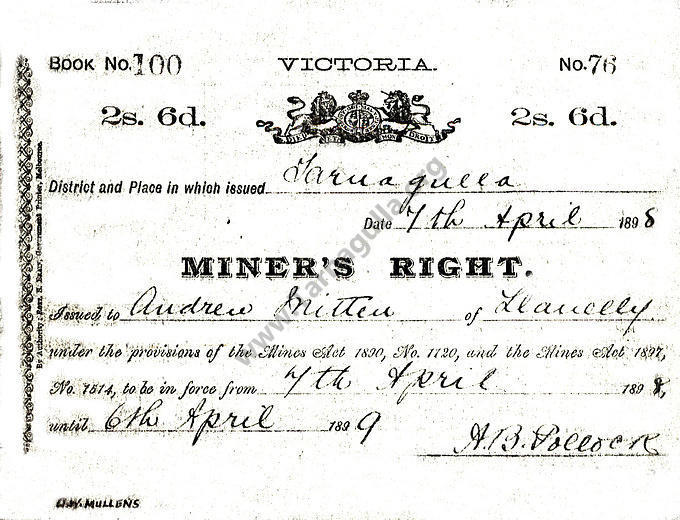 BOOK No. 100 VICTORIA. No. 76
2s. 6d. 2s. 6d.
DIEU ET MON DROIT
District and Place in which issued Tarnagulla
Date 7th April 1898
MINER'S RIGHT.
Issued to Andrew Mitten of Llanelly
under the provisions of the Mines Act 1890, No. 1120, and the Mines Act 1897,
No. 1514, to be in force from 7th April 1898,
until 6th April 1899
A.B. Pollock
H.W. MULLENS
By Authority: Robt. S. Brain, Government Printer, Melbourne.
www.tarnagulla.org